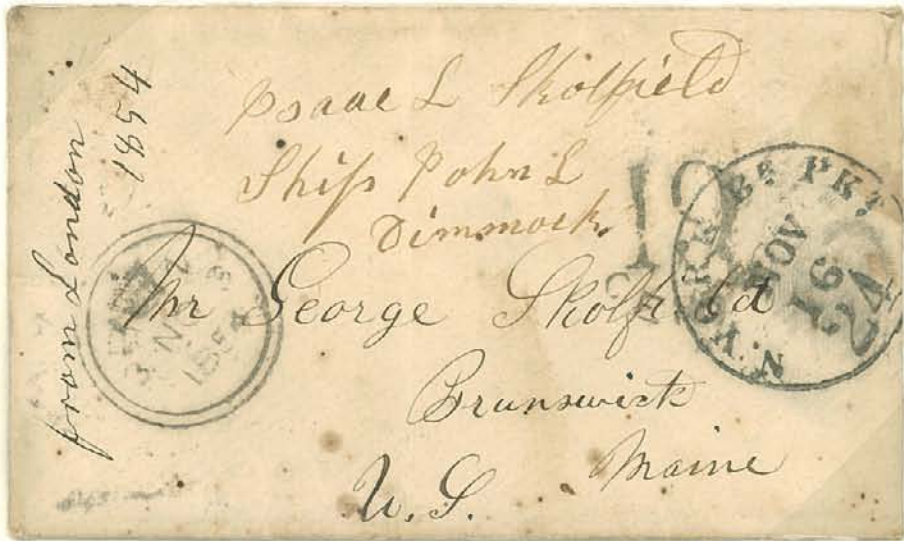 from London
1854
Isaac L Skolfield
Ship John L
Dimmock.
19
N. YORK Br PKT
NOV
16
24
Mr George Skolfield
1854
Brunswick
Maine
U.S.